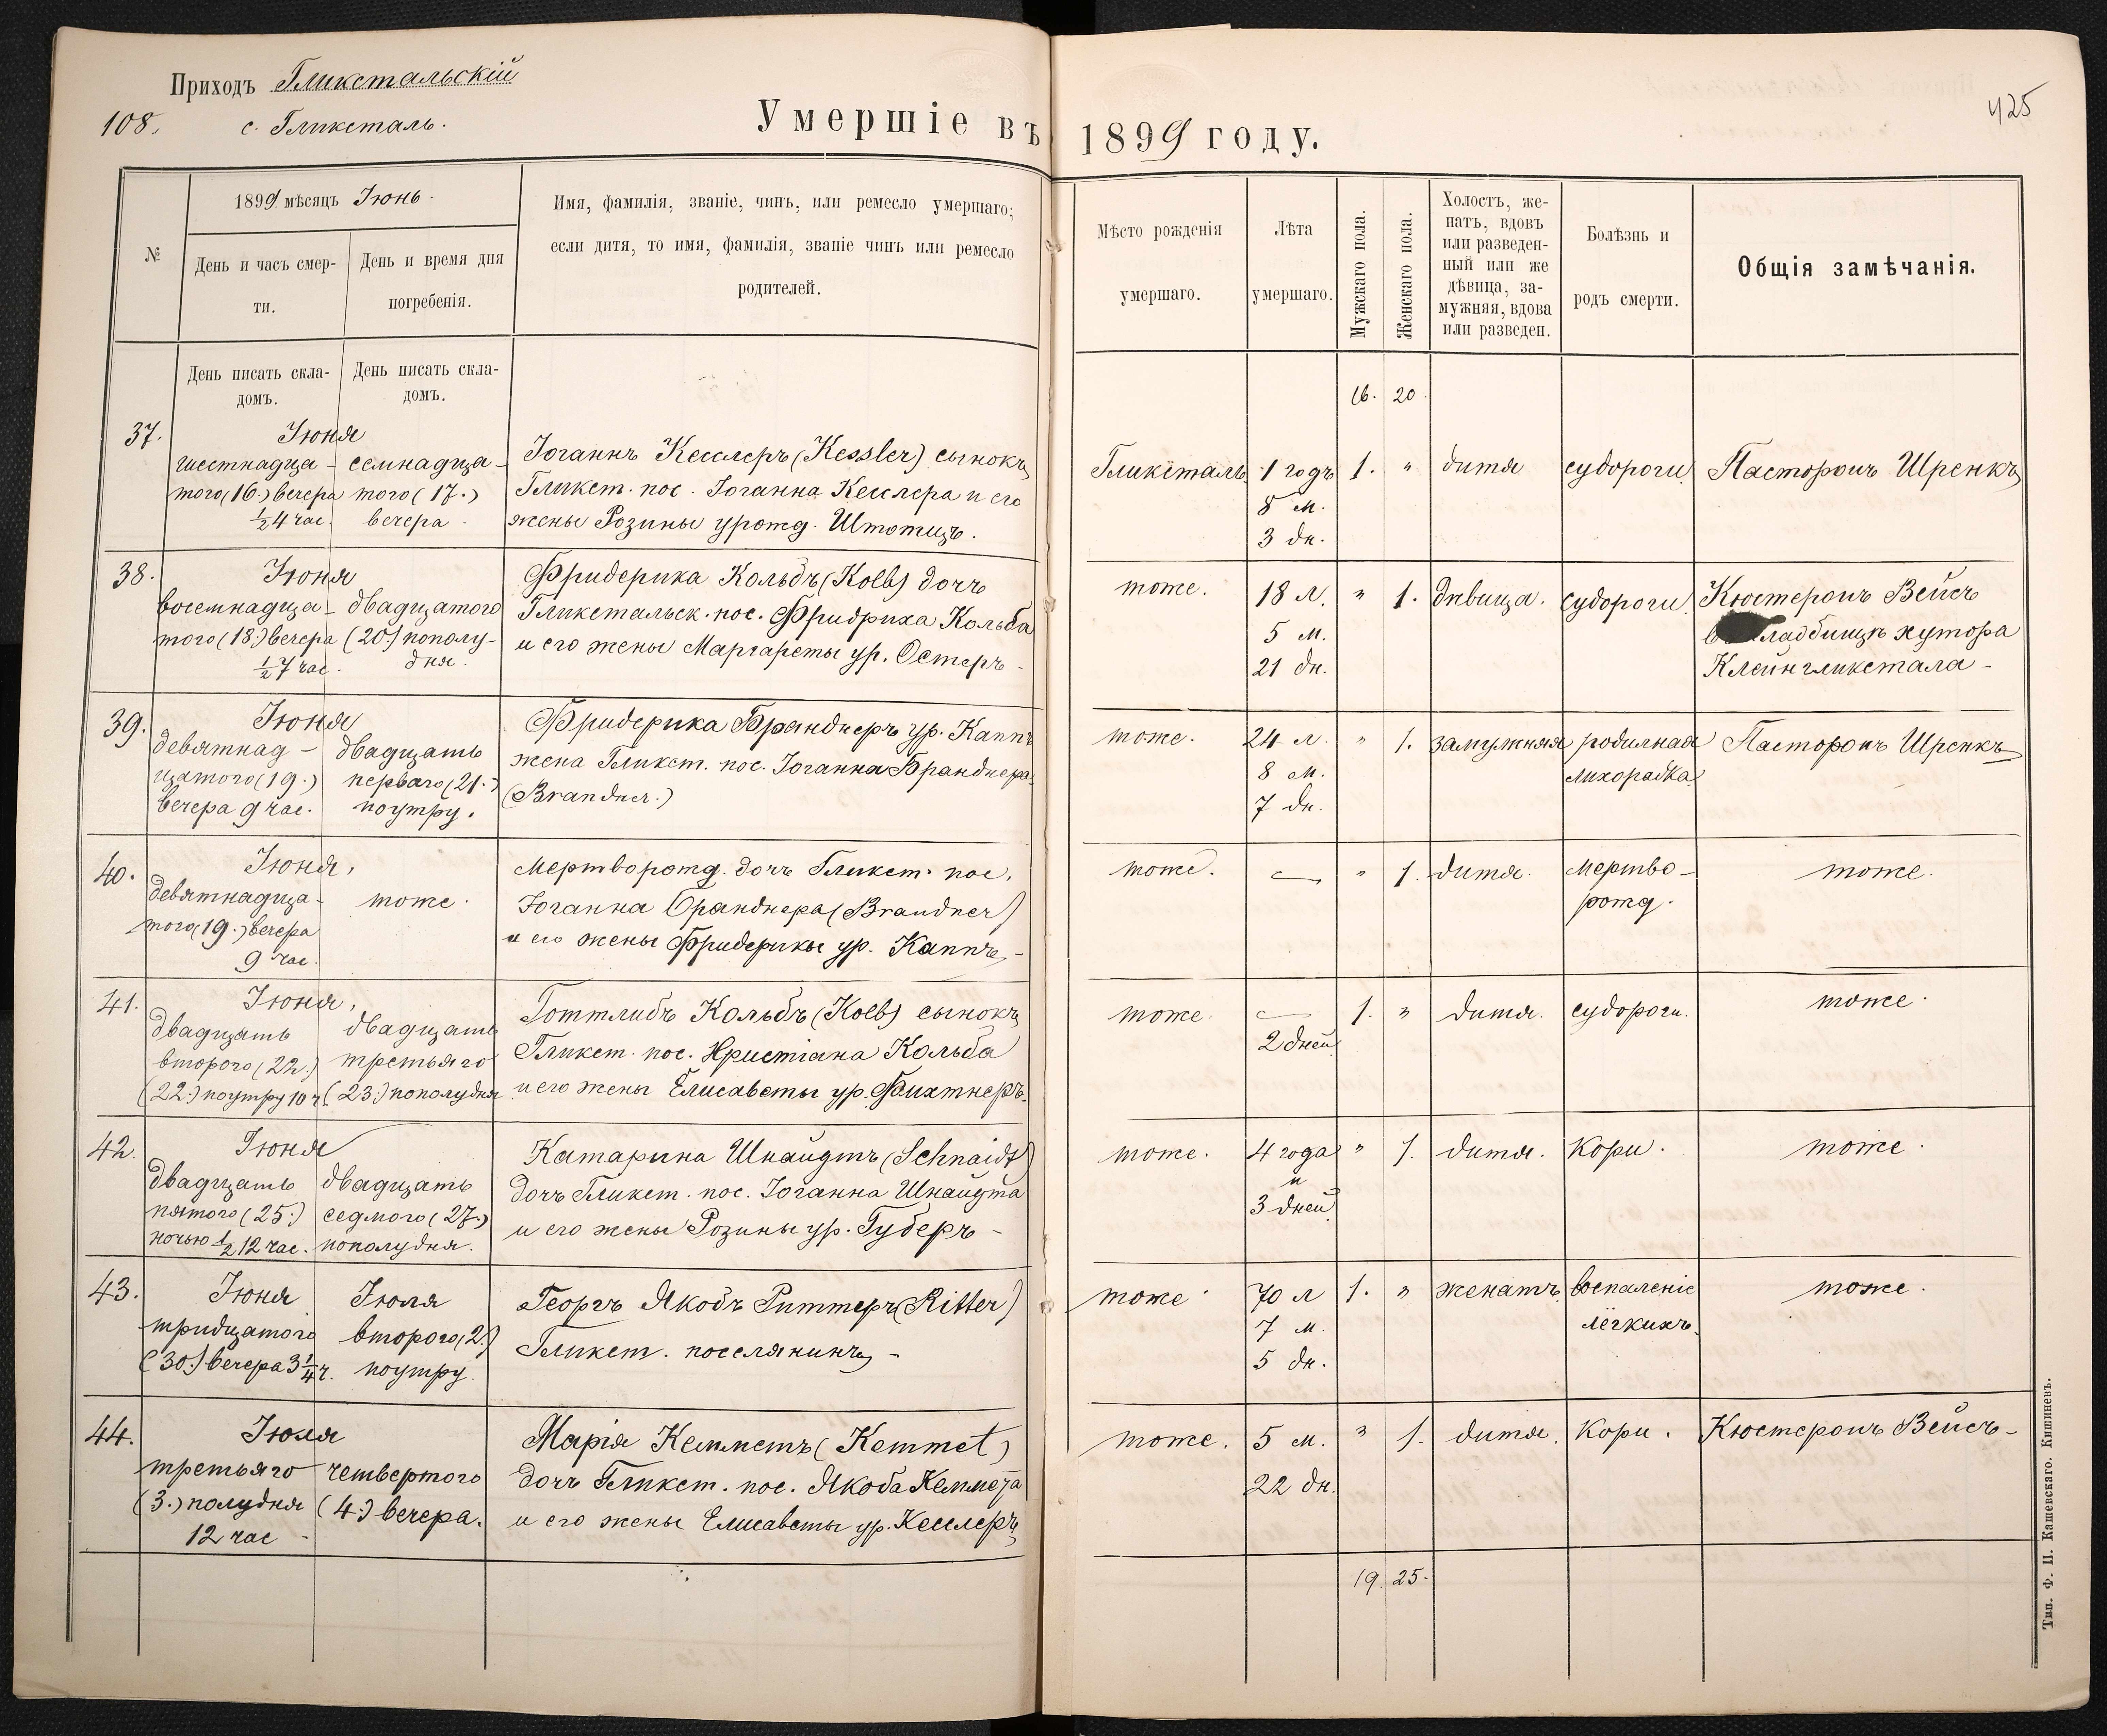 Приходъ Гликстальскій
108.
с. Гликсталь.
Умершіе въ 1899 году.
425
№
1899 мѣсяцъ Іюнь.
День и часъ смер-
ти.
День и время дня
погребенія.
Имя, фамилія, званіе, чинъ, или ремесло умершаго;
если дитя, то имя, фамилія, званіе чинъ или ремесло
родителей.
Мѣсто рожденія
умершаго.
Лѣта
умершаго.
Мужскаго пола.
Женскаго пола.
Холостъ, же-
натъ, вдовъ
или разведен-
ный или же
дѣвица, за-
мужняя, вдова
или разведен.
Болѣзнь и
родъ смерти.
Общія замѣчанія.
День писать скла-
домъ.
День писать скла-
домъ.
16. 20.
37.
Іюня
шестнадца-
того (16.) вечера
½4 час.
семнадца-
того (17.)
вечера.
Іоганнъ Кесслеръ (Kessler) сынокъ
Гликст. пос. Іоганна Кесслера и его
жены Розины урожд. Штотцъ.
Гликсталь
1 годъ
8 м.
3 дн.
1. "
дитя
судороги.
Пасторомъ Шренкъ
38.
Іюня
восемнадца-
того (18.) вечера
½7 час.
двадцатого
(20.) пополу-
дня.
Фридерика Кольбъ (Kolb) дочь
Гликстальск. пос. Фридриха Кольба
и его жены Маргареты ур. Остеръ-
тоже.
18 л.
5 м.
21 дн.
" 1.
дѣвица.
судороги.
Кюстеромъ Вейсъ
кладбищѣ хутора
Клейнгликстала-
39.
Іюня
девятнад-
цатого (19.)
вечера 9 час.
двадцать
перваго (21.)
поутру.
Фридерика Бранднеръ ур. Каппъ
жена Гликст. пос. Іоганна Бранднера
(Brandner.)
тоже.
24 л.
8 м.
7 дн.
" 1.
замужняя
родилная
лихорадка.
Пасторомъ Шренкъ
40.
Іюня,
девятнадца-
того (19.) вечера
9 час.
тоже.
Мертворожд. дочь Гликст. пос.
Іоганна Бранднера (Brandner)
и его жены Фридерики ур. Каппъ-
тоже.
—
" 1.
дитя.
мертво-
рожд.
тоже.
41.
Іюня,
двадцать
второго (22.)
(22.) поутру 10 ч.
двадцать
третьяго
(23.) пополудня
Готтлибъ Кольбъ (Kolb) сынокъ
Гликст. пос. Христіана Кольба
и его жены Елисаветы ур. Фихтнеръ.
тоже.
—
2 дней
1. "
дитя.
судороги.
тоже.
42.
Іюня
двадцать
пятого (25.)
ночью ½12 час.
двадцать
седмого (27.)
пополудня.
Катарина Шнайдтъ (Schnaidt)
дочь Гликст. пос. Іоганна Шнайдта
и его жены Розины ур. Губеръ-
тоже.
4 года
и
3 дней.
" 1.
дитя.
Кори.
тоже.
43.
Іюня
тридцатого
(30.) вечера 3¼ч.
Іюля
второго (2.)
поутру.
Георгъ Якобъ Риттеръ (Ritter)
Гликст. поселянинъ-
тоже
70 л
7 м.
5 дн.
1. "
женатъ.
воспаленіе
лёгкихъ.
тоже.
44.
Іюля
третьяго
(3.) полудня
12 час -
четвертого
(4.) вечера.
Марія Кемметъ (Kemmet)
дочь Гликст. пос. Якоба Кеммета
и его жены Елисаветы ур. Кесслеръ
тоже.
5 м.
22 дн.
" 1.
дитя.
Кори.
Кюстеромъ Вейсъ-
19. 25.
Тип. Ф. П. Кашевскаго. Кишиневъ.